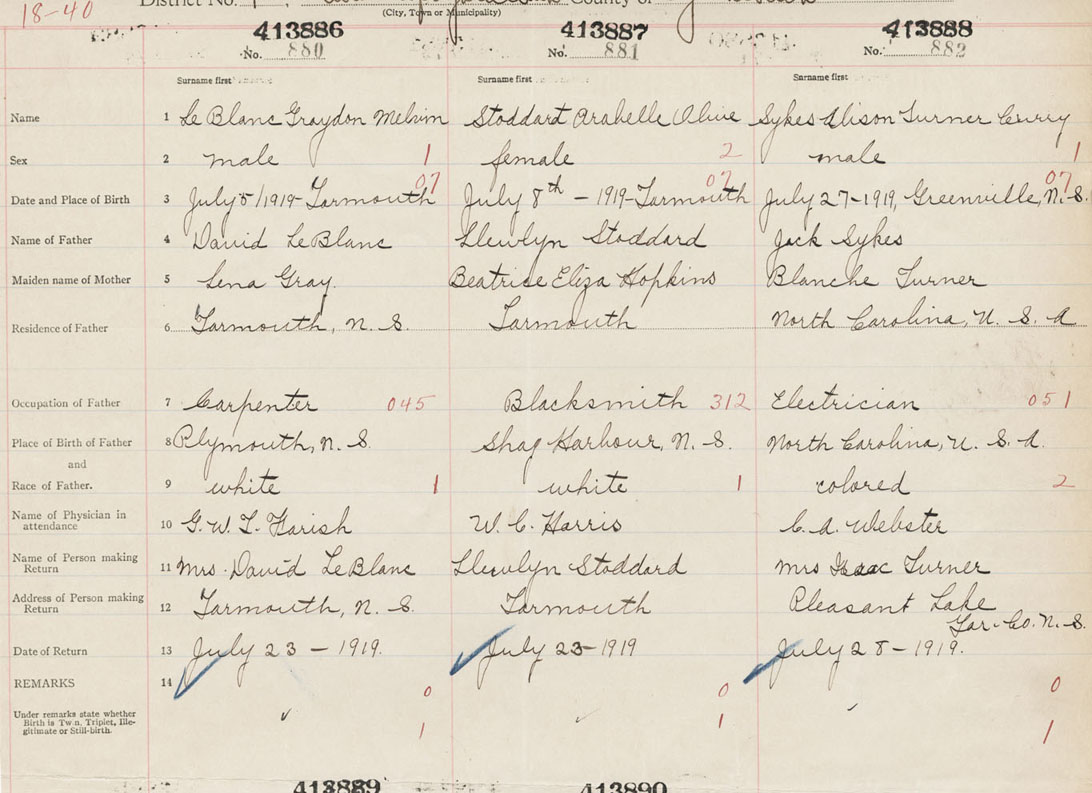 18-40
District No. 1, County of
(City, Town or Municipality)
413886 413887 413888
No. 880 No. 881 No. 882
Surname first Surname first Surname first
Name 1 Le Blanc Graydon Melvim Stoddart Arabelle Olive Sykes Alison Turner Curry
Sex 2 male 1 female 2 male 1
07 07 07
Date and Place of Birth 3 July 5/1919-Yarmouth July 8th - 1919-Yarmouth July 27-1919, Greenville, N.S.
Name of Father 4 David LeBlanc Llewlyn Stoddard Jack Sykes
Maiden name of Mother 5 Lena Gray. Beatrice Eliza Hopkins Blanche Turner
Residence of Father 6 Yarmouth, N. S. Yarmouth North Carolina, U. S. A
Occupation of Father 7 Carpenter 045 Blacksmith 312 Electrician 051
Place of Birth of Father 8 Plymouth, N. S. Shag Harbour, N. S. North Carolina, U. S. A.
and
Race of Father. 9 white 1 white 1 colored 2
Name of Physician in
attendance 10 G. W. T. Farish W. C. Harris C. A. Webster
Name of Person making
Return 11 Mrs. David LeBlanc Llewlyn Stoddard Mrs Isaac Turner
Address of Person making
Return 12 Yarmouth, N. S. Yarmouth Pleasant Lake
Yar. Co. N. S.
Date of Return 13 July 23 - 1919. July 23-1919 July 28-1919.
REMARKS 14 0 0 0
Under remarks state whether
Birth is Twin, Triplet, Ille-
gitimate or Still-birth. 1 1 1
413889 413890